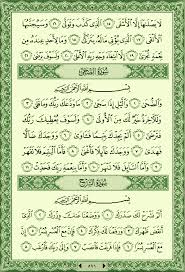 لَا يَصْلَىٰهَآ إِلَّا ٱلْأَشْقَى ١٥ ٱلَّذِى كَذَّبَ وَتَوَلَّىٰ ١٦ وَسَيُجَنَّبُهَا
ٱلْأَتْقَى ١٧ ٱلَّذِى يُؤْتِى مَالَهُۥ يَتَزَكَّىٰ ١٨ وَمَا لِأَحَدٍ عِندَهُۥ مِن
نِّعْمَةٍ تُجْزَىٰٓ ١٩ إِلَّا ٱبْتِغَآءَ وَجْهِ رَبِّهِ ٱلْأَعْلَىٰ ٢٠ وَلَسَوْفَ يَرْضَىٰ ٢١
سُورَةُ الضُّحَىٰ
بِسْمِ ٱللَّهِ ٱلرَّحْمَٰنِ ٱلرَّحِيمِ
وَٱلضُّحَىٰ ١ وَٱلَّيْلِ إِذَا سَجَىٰ ٢ مَا وَدَّعَكَ رَبُّكَ وَمَا قَلَىٰ ٣
وَلَلْءَاخِرَةُ خَيْرٌ لَّكَ مِنَ ٱلْأُولَىٰ ٤ وَلَسَوْفَ يُعْطِيكَ رَبُّكَ
فَتَرْضَىٰٓ ٥ أَلَمْ يَجِدْكَ يَتِيمًا فَـَٔاوَىٰ ٦ وَوَجَدَكَ ضَآلًّا
فَهَدَىٰ ٧ وَوَجَدَكَ عَآئِلًا فَأَغْنَىٰ ٨ فَأَمَّا ٱلْيَتِيمَ فَلَا تَقْهَرْ
٩ وَأَمَّا ٱلسَّآئِلَ فَلَا تَنْهَرْ ١٠ وَأَمَّا بِنِعْمَةِ رَبِّكَ فَحَدِّثْ ١١
سُورَةُ الشَّرْحِ
بِسْمِ ٱللَّهِ ٱلرَّحْمَٰنِ ٱلرَّحِيمِ
أَلَمْ نَشْرَحْ لَكَ صَدْرَكَ ١ وَوَضَعْنَا عَنكَ وِزْرَكَ ٢
ٱلَّذِىٓ أَنقَضَ ظَهْرَكَ ٣ وَرَفَعْنَا لَكَ ذِكْرَكَ ٤ فَإِنَّ مَعَ ٱلْعُسْرِ يُسْرًا ٥
إِنَّ مَعَ ٱلْعُسْرِ يُسْرًا ٦ فَإِذَا فَرَغْتَ فَٱنصَبْ ٧ وَإِلَىٰ رَبِّكَ فَٱرْغَب ٨
٥٩٦